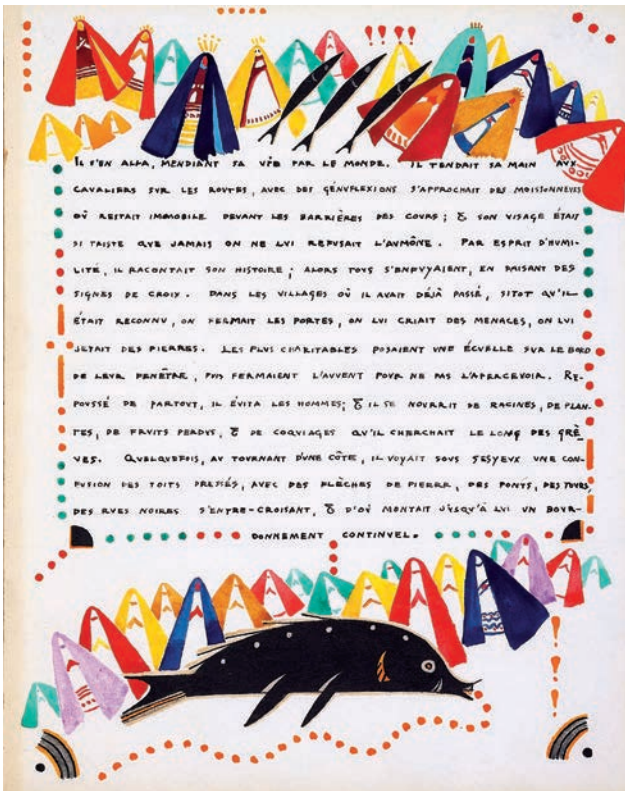 IL S'EN ALLA, MENDIANT SA VIE PAR LE MONDE. IL TENDAIT SA MAIN AUX
CAVALIERS SUR LES ROUTES, AVEC DES GÉNUFLEXIONS S'APPROCHAIT DES MOISSONNEURS
OU RESTAIT IMMOBILE DEVANT LES BARRIÈRES DES COURS ; & SON VISAGE ÉTAIT
SI TRISTE QUE JAMAIS ON NE LUI REFUSAIT L'AUMÔNE. PAR ESPRIT D'HUMI-
LITÉ, IL RACONTAIT SON HISTOIRE ; ALORS TOUS S'ENFUYAIENT, EN FAISANT DES
SIGNES DE CROIX. DANS LES VILLAGES OÙ IL AVAIT DÉJÀ PASSÉ, SITOT QU'IL
ÉTAIT RECONNU, ON FERMAIT LES PORTES, ON LUI CRIAIT DES MENACES, ON LUI
JETAIT DES PIERRES. LES PLUS CHARITABLES POSAIENT UNE ÉCUELLE SUR LE BORD
DE LEUR FENÊTRE, PUIS FERMAIENT L'AUVENT POUR NE PAS L'APERCEVOIR. RE-
POUSSÉ DE PARTOUT, IL ÉVITA LES HOMMES ; & IL SE NOURRIT DE RACINES, DE PLAN-
TES, DE FRUITS PERDUS, & DE COQUIAGES QU'IL CHERCHAIT LE LONG DES GRÈ-
VES. QUELQUEFOIS, AU TOURNANT D'UNE CÔTE, IL VOYAIT SOUS SES YEUX UNE CON-
FUSION DES TOITS PRESSÉS, AVEC DES FLÈCHES DE PIERRE, DES PONTS, DES TOURS,
DES RUES NOIRES S'ENTRE-CROISANT, & D'OÙ MONTAIT JUSQU'À LUI UN BOUR-
DONNEMENT CONTINUEL.